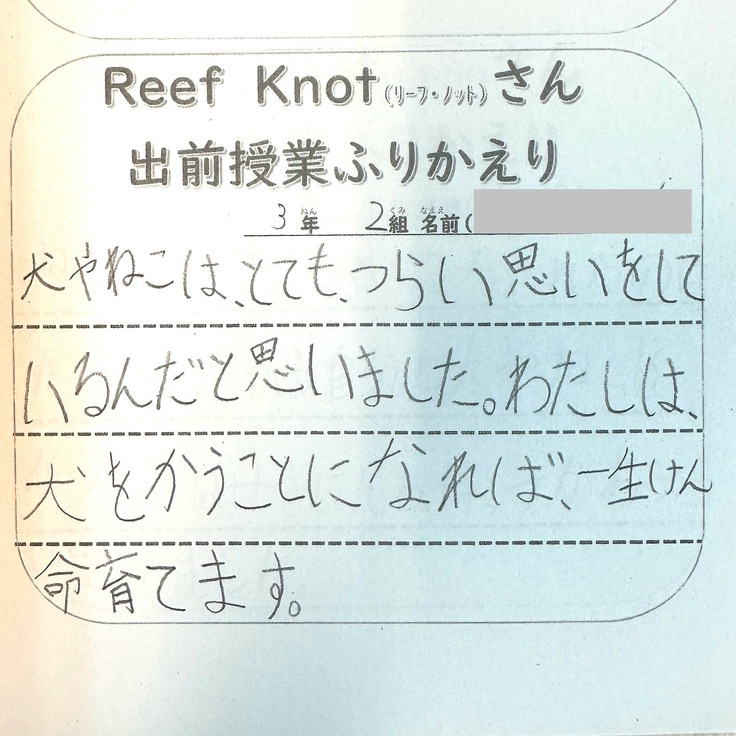 Reef Knot(リーフ・ノット)さん
出前授業ふりかえり
3年 2組 名前(
犬やねこは、とても、つらい思いをして
いるんだと思いました。わたしは、
犬をかうことになれば、一生けん
命育てます。